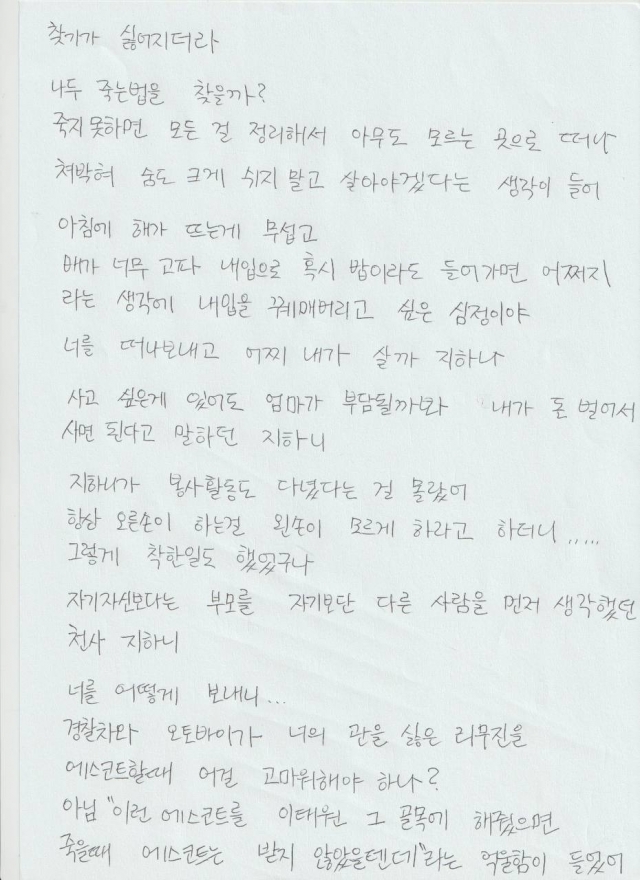 찾기가 싫어지더라
나두 죽는법을 찾을까?
죽지못하면 모든 걸 정리해서 아무도 모르는 곳으로 떠나
쳐박혀 숨도 크게 쉬지 말고 살아야겠다는 생각이 들어
아침에 해가 뜨는게 무섭고
배가 너무 고파 내입으로 혹시 밥이라도 들어가면 어쩌지
라는 생각에 내입을 꿰매버리고 싶은 심정이야
너를 떠나보내고 어찌 내가 살까 지하나
사고 싶은게 있어도 엄마가 부담될까봐 내가 돈 벌어서
사면 된다고 말하던 지하니
지하니가 봉사활동도 다녔다는 걸 몰랐어
항상 오른손이 하는걸 왼손이 모르게 하라고 하더니......
그렇게 착한일도 했었구나
자기자신보다는 부모를 자기보단 다른 사람을 먼저 생각했던
천사 지하니
너를 어떻게 보내니...
경찰차와 오토바이가 너의 관을 실은 리무진을
에스코트할때 어걸 고마워해야 하나?
아님 "이런 에스코트를 이태원 그 골목에 해줬으면
죽을때 에스코트는 받지 않았을텐데"라는 억울함이 들었어